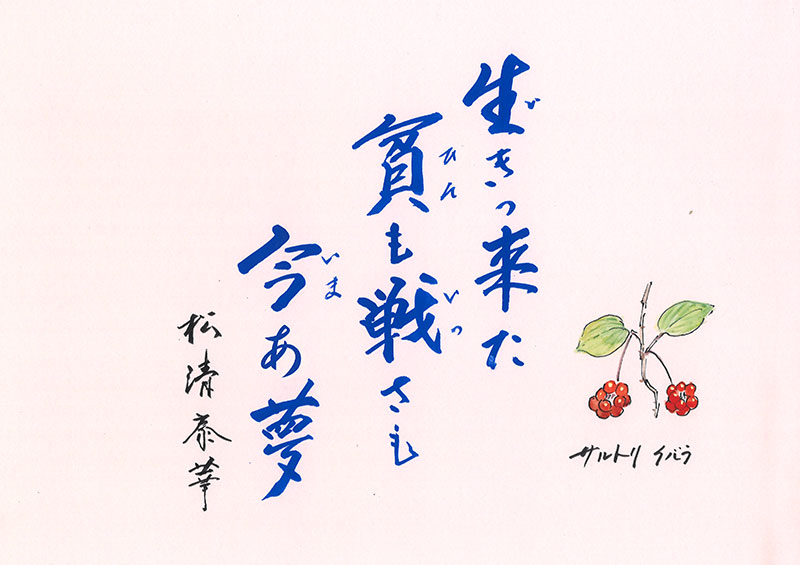 生きっ来た
い
貧も戦さも
ひん いっ
今あ夢
いま
松清泰華
サルトリイバラ